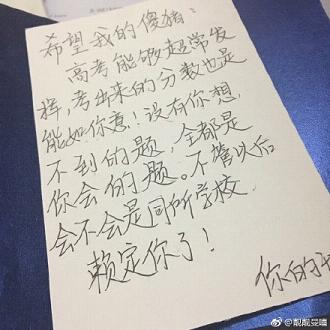 希望我的傻猪：
高考能够超常发
挥，考出来的分数也是
能如你意！没有你想
不到的题，全都是
你会的题。不管以后
会不会是同所学校
赖定你了！
你的
@靓靓旻瞳